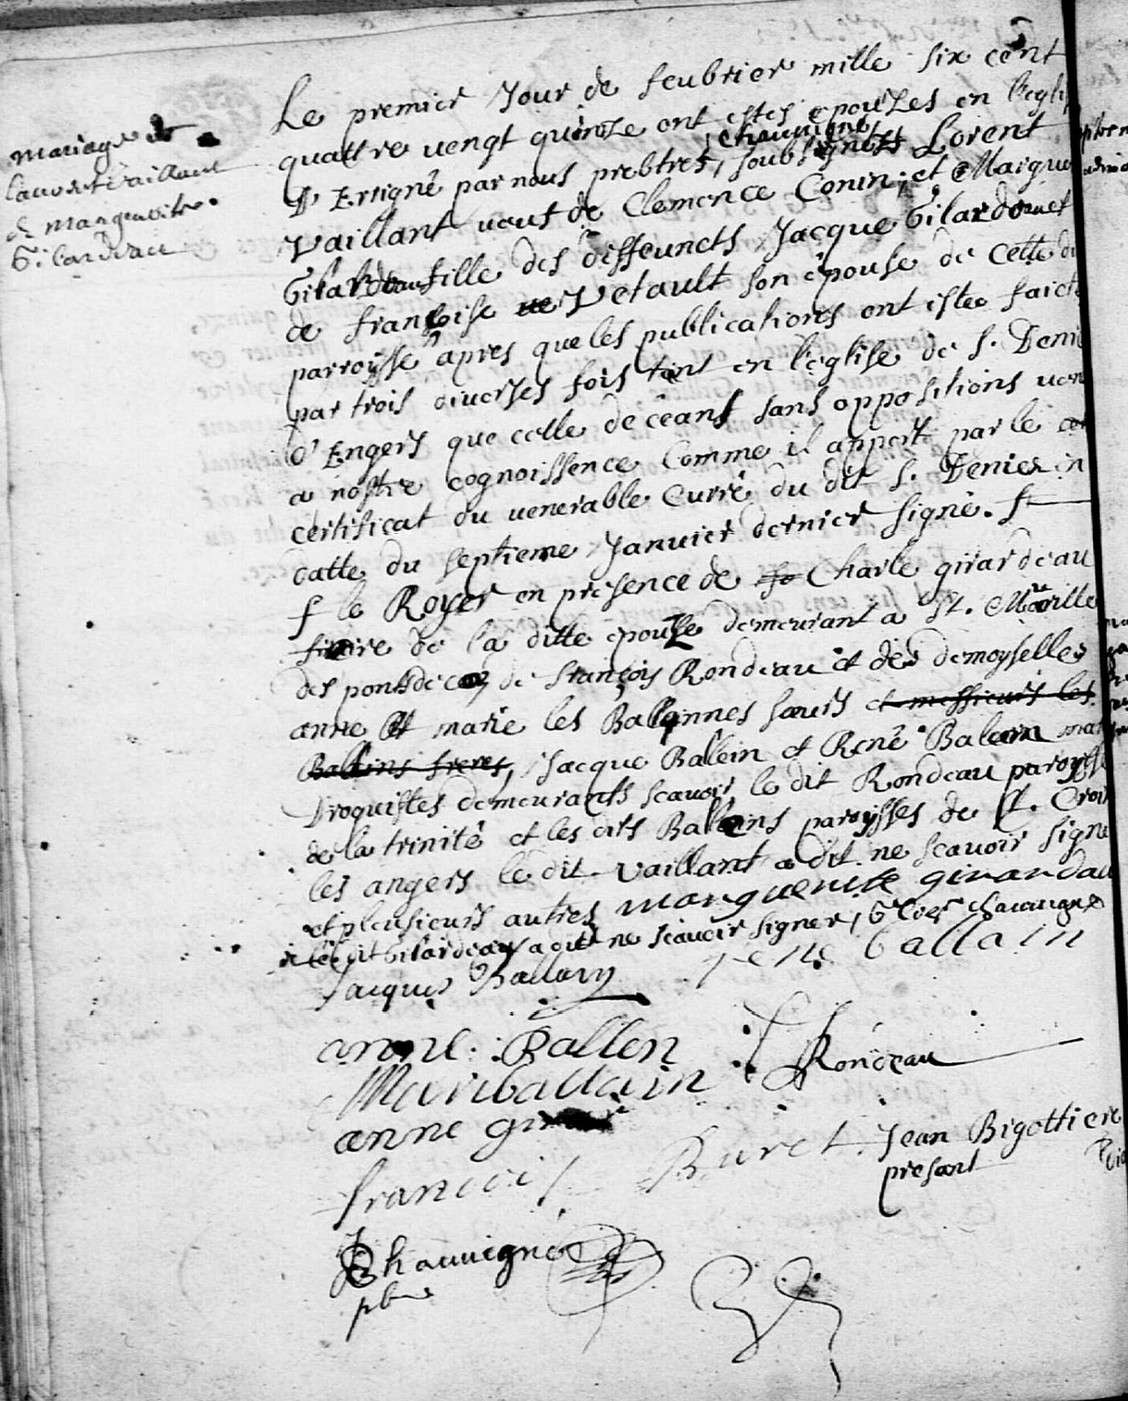 mariage de
laurent vaillant
& marguerite
Gilardeau
Le premier Jour de feubrier mille six cent
quattre uengt quinze ont estés epouses en l'egli
D'Erigné par nous prebtres, soubsignés Lorent
chauvigné
Vaillant ueuf de Clemence Conin, et Margue
Gilardeau fille des deffeuncts Jacque Gilardeau et
de françoise Vetault son épouse de Cette di
parroysse apres que les publications ont estée faict
par trois diverses fois tant en l'eglise de S. Deni
d'Engers que celle de céans sans oppositions uen
a nostre cognoissence Comme il appert par le
certificat du uenerable Curré du dit S. Denies in
datte du septieme Januier dernier signé. f
f le Royer en présence de Charle girardeau
frere de la ditte epouse demeurant a St. Maurille
des ponts de cez, de françois Rondeau et des demoyselles
anne et marie les Ballinnes sœurs et messieurs les
Ballins freres, Jacque Balein et René Balein mar
Droquistes demeurants scauoir le dit Rondeau paroysse
de la trinité et les dits Ballins paroysses de St. Croix
les angers le dit Vaillant a dit ne scauoir signe
et plusieurs autres marguerite girardau
le dit Gilardeau a dit ne scauoir signer, chauvigné
Jacques Ballain rene ballain
anne Ballen
F Rondeau
Marie ballain
anne
francois Buret Jean Bigottiere
présant
Chauvigné
pbre